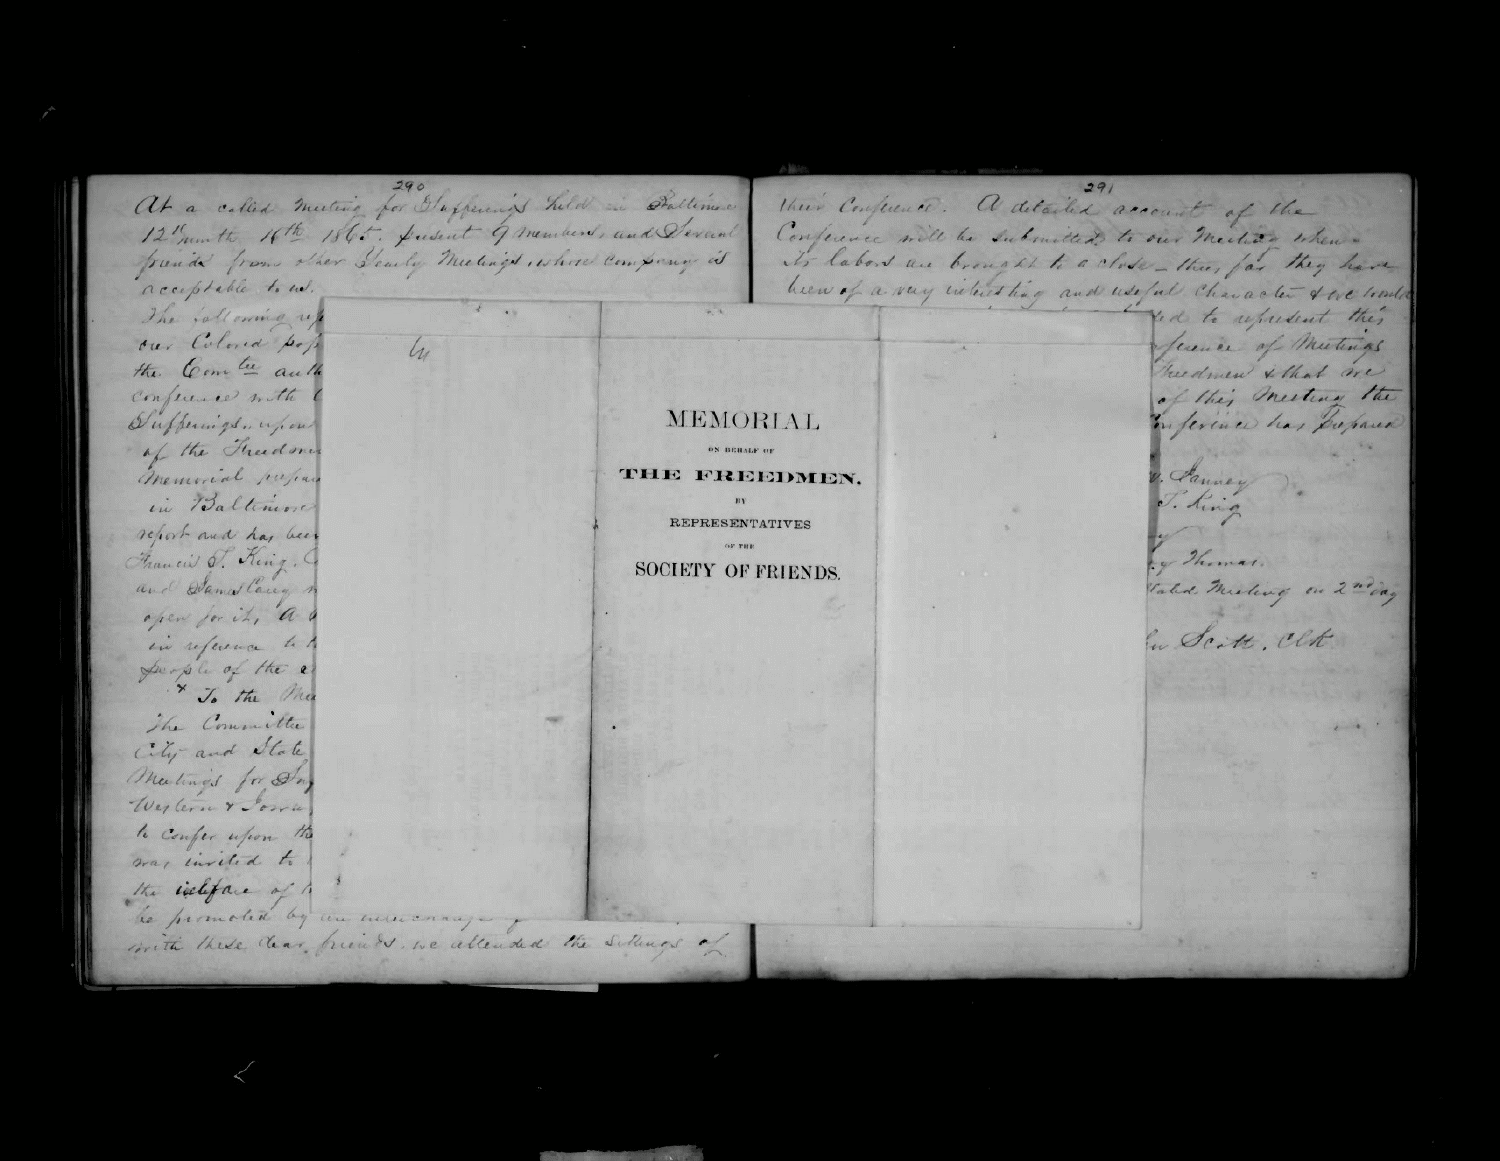 290
At a called Meeting for Sufferings held in Baltimore
12th month 16th 1865. present 9 members, and Several
friends from other Yearly Meetings, whose company is
acceptable to us.
The following rep
our Colored pop
the Comtee auth
conference with
Sufferings upon
of the Freedmen
Memorial prepar
in Baltimore
report and has been
Francis T. King.
and James Carey
open for it, A
in reference to t
people of the
x To the Mee
The Committee
City and State
Meetings for Suf
Western & Iowa,
to confer upon the
was invited to
the welfare of t
be promoted by an interchange of
with these dear friends. we attended the sittings of
MEMORIAL
ON BEHALF OF
THE FREEDMEN.
BY
REPRESENTATIVES
OF THE
SOCIETY OF FRIENDS.
291
their Conference. A detailed account of the
Conference will be submitted to our Meeting when
its labors are brought to a close - thus far they have
been of a very interesting and useful Character & we would
ted to represent this
nference of Meetings
Freedmen & that we
of this Meeting the
Conference has prepared
w. Janney
T. King
ey
ry Thomas.
Stated Meeting on 2nd day
Scott. Clk